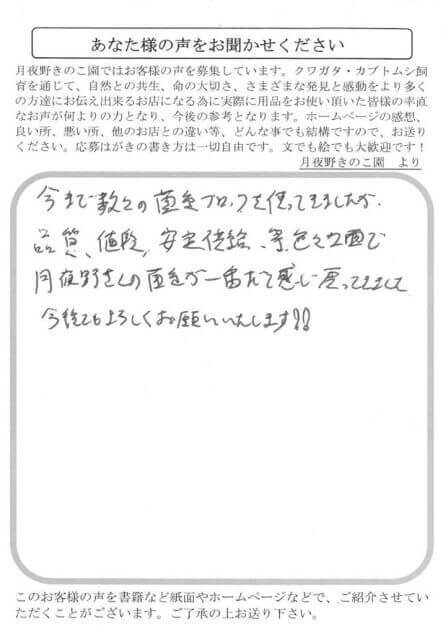 あなた様の声をお聞かせください
月夜野きのこ園ではお客様の声を募集しています。クワガタ・カブトムシ飼
育を通じて、自然との共生、命の大切さ、さまざまな発見と感動をより多く
の方達にお伝え出来るお店になる為に実際に用品をお使い頂いた皆様の率直
なお声が何よりの力となり、今後の参考となります。ホームページの感想、
良い所、悪い所、他のお店との違い等、どんな事でも結構ですので、お送り
ください。応募はがきの書き方は一切自由です。文でも絵でも大歓迎です！
月夜野きのこ園　より
今まで数々の菌糸ブロックを使ってきましたが、
品質、値段、安定供給、等色々な面で
月夜野さんの菌糸が一番だと感じ戻ってきました
今後ともよろしくお願いいたします!!
このお客様の声を書籍など紙面やホームページなどで、ご紹介させてい
ただくことがございます。ご了承の上お送り下さい。